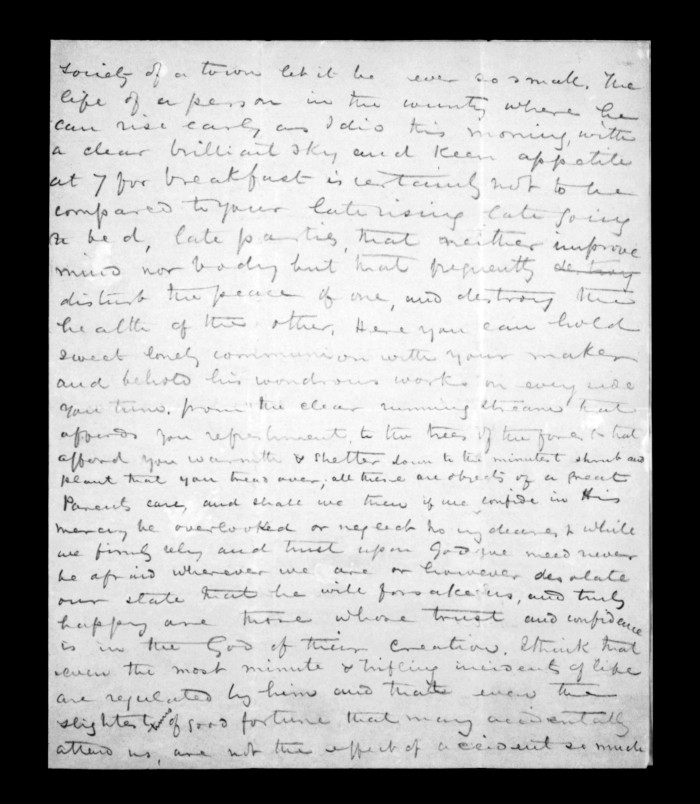 society of a town let it be ever so small. The
life of a person in the country where he
can rise early as I did this morning, with
a clear brilliant sky and keen appetite
at 7 for breakfast is certainly not to be
compared to your late rising late going
to bed, late parties, that neither improve
mind nor body but that frequently destroy
disturb the peace of one, and destroy the
health of the other. Here you can hold
sweet lonely communion with your maker
and behold his wondrous works on every side
you turn. from the clear running stream that
affords you refreshment, to the trees of the forest that
afford you warmth & shelter down to the minutest shrub and
plant that you tread over, all these are objects of a great
Parents care, and shall we then if we confide in His
mercy be overlooked or neglected no my dearest while
we firmly rely and trust upon God we need never
be afraid wherever we are or however desolate
our state that he will forsake us, and truly
happy are those whose trust and confidence
is in the God of their creation. I think that
even the most minute & trifling incidents of life
are regulated by him and that even the
slightest of good fortune that may accidentally
attend us, are not the effect of accident so much